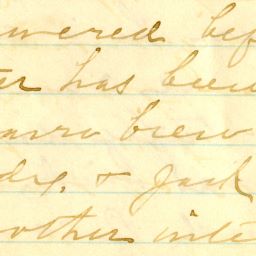 wered bef
ter has been
brew
dy, & Jack
other inte